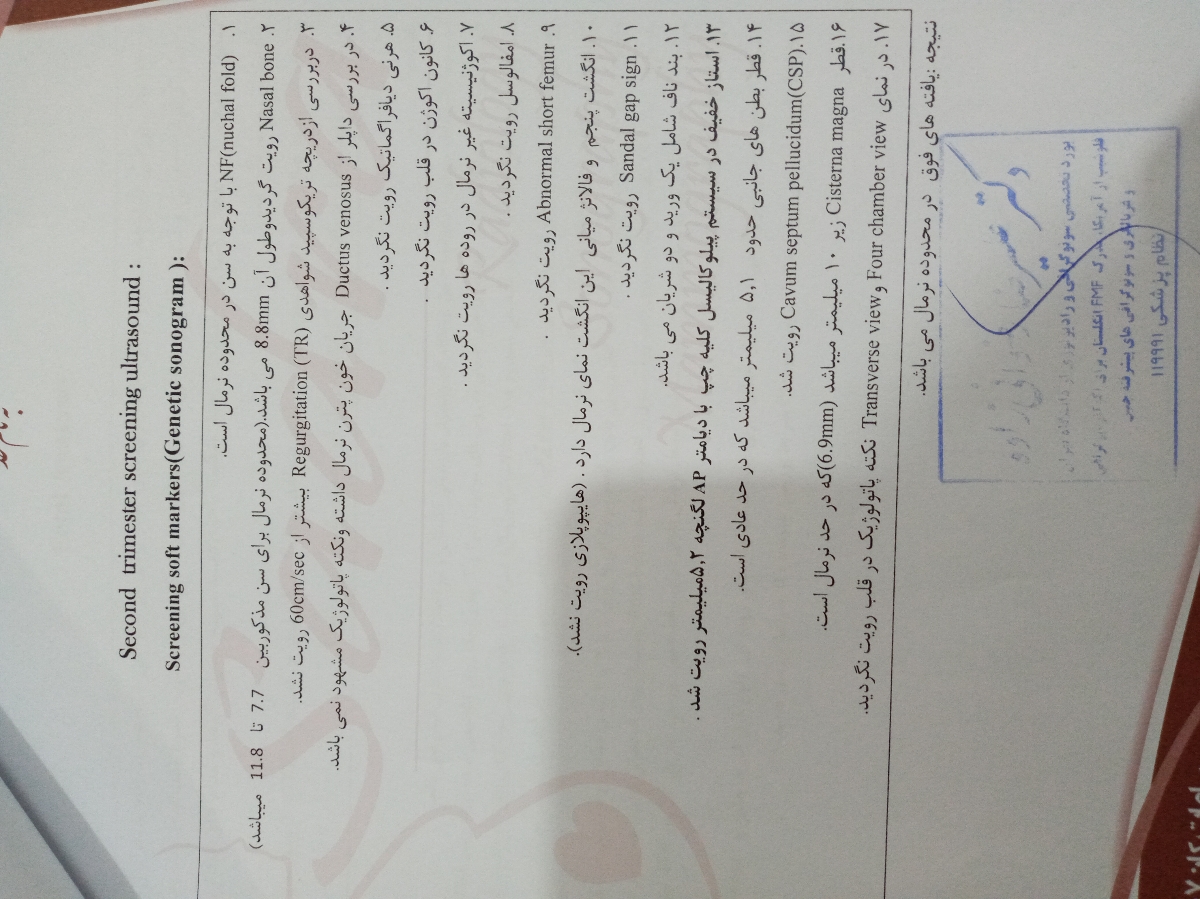 Second trimester screening ultrasound :
Screening soft markers(Genetic sonogram ):
۱. NF(nuchal fold) با توجه به سن در محدوده نرمال است.
۲. Nasal bone رویت گردیدوطول آن 8.8mm می باشد.(محدوده نرمال برای سن مذکوربین 7.7 تا 11.8 میباشد)
۳. دربررسی ازدریچه تریکوسپید شواهدی Regurgitation (TR) بیشتر از 60cm/sec رویت نشد.
۴. در بررسی داپلر از Ductus venosus جریان خون پترن نرمال داشته ونکته پاتولوژیک مشهود نمی باشد.
۵. هرنی دیافراگماتیک رویت نگردید .
۶. کانون اکوژن در قلب رویت نگردید .
۷. اکوژنیسیته غیر نرمال در روده ها رویت نگردید .
۸. امفالوسل رویت نگردید .
۹. Abnormal short femur رویت نگردید .
۱۰. انگشت پنجم و فالانژ میانی این انگشت نمای نرمال دارد . (هایپوپلازی رویت نشد).
۱۱. Sandal gap sign رویت نگردید .
۱۲. بند ناف شامل یک ورید و دو شریان می باشد.
۱۳. استاز خفیف در سیستم پیلوکالیسل کلیه چپ با دیامتر AP لگنچه ۵,۲میلیمتر رویت شد .
۱۴. قطر بطن های جانبی حدود ۵,۱ میلیمتر میباشد که در حد عادی است.
۱۵. Cavum septum pellucidum(CSP) رویت شد.
۱۶. قطر Cisterna magna زیر ۱۰ میلیمتر میباشد (6.9mm)که در حد نرمال است.
۱۷. در نمای Four chamber view و Transverse view نکته پاتولوژیک در قلب رویت نگردید.
نتیجه :یافته های فوق در محدوده نرمال می باشد.
دکتر
بورد تخصصی سونوگرافی و رادیولوژی از دانشگاه
فلوشیپ از آمریکا، مدرک FMF انگلستان برای
و غربالگری و سونوگرافی های پیشرفته جنین
نظام پزشکی ۱۱۹۹۹۱